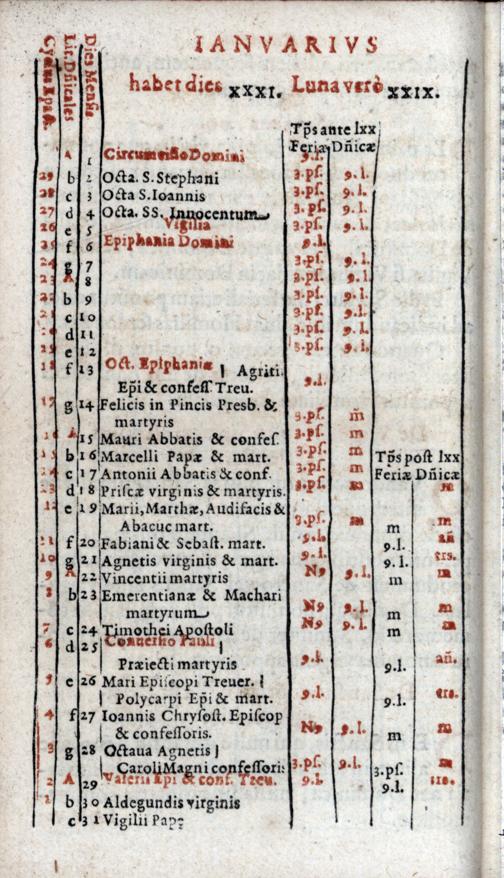 IANVARIVS
habet dies XXXI. Luna verò XXIX.
Lit. Dñicales Dies Mensis
Tp̃s ante lxx
Feriæ Dñicæ
A 1 Circumcisio Domini 9.l.
29 b 2 Octa. S. Stephani 3.ps. 9.l.
28 c 3 Octa S. Ioannis 3.ps. 9.l.
27 d 4 Octa. SS. Innocentum 3.ps. 9.l.
26 e 5 Vigilia 3.ps. 9.l.
25 f 6 Epiphania Domini 9.l.
24 g 7 3.ps. 9.l.
23 A 8 3.ps. 9.l.
22 b 9 3.ps. 9.l.
21 c 10 3.ps. 9.l.
d 11 3.ps. 9.l.
e 12 3.ps. 9.l.
18 f 13 Oct. Epiphaniæ | Agriti.
Ep̃i & confess. Treu. 9.l.
17 g 14 Felicis in Pincis Presb. &
martyris 3.ps. m̃
16 A 15 Mauri Abbatis & confes. 3.ps. m
15 b 16 Marcelli Papæ & mart. 3.ps. m
Tp̃s post lxx
Feriæ Dñicæ
c 17 Antonii Abbatis & conf. 3.ps. m
d 18 Priscæ virginis & martyris. 3.ps. m m
12 e 19 Marii, Marthæ, Audifacis &
Abacuc mart. 3.ps. m m m
11 f 20 Fabiani & Sebast. mart. 9.l. 9.l. añ
10 g 21 Agnetis virginis & mart. 9.l. 9.l. trs.
9 A 22 Vincentii martyris N9 9.l. m m
8 b 23 Emerentianæ & Machari
martyrum N9 9.l. m m
7 c 24 Timothei Apostoli N9 9.l. m m
6 d 25 Conuersio Pauli |
Præiecti martyris 9.l. 9.l. añ.
e 26 Mari Episcopi Treuer. |
Polycarpi Ep̃i & mart. 9.l. 9.l. trs.
4 f 27 Ioannis Chrysost. Episcop
& confessoris. N9 9.l. m m
3 g 28 Octaua Agnetis |
Caroli Magni confessoris 3.ps. 9.l. 3.ps. m
2 A 29 Valerii Ep̃i & conf. Treu. 9.l. 9.l. trs.
b 30 Aldegundis virginis
c 31 Vigilii Papæ